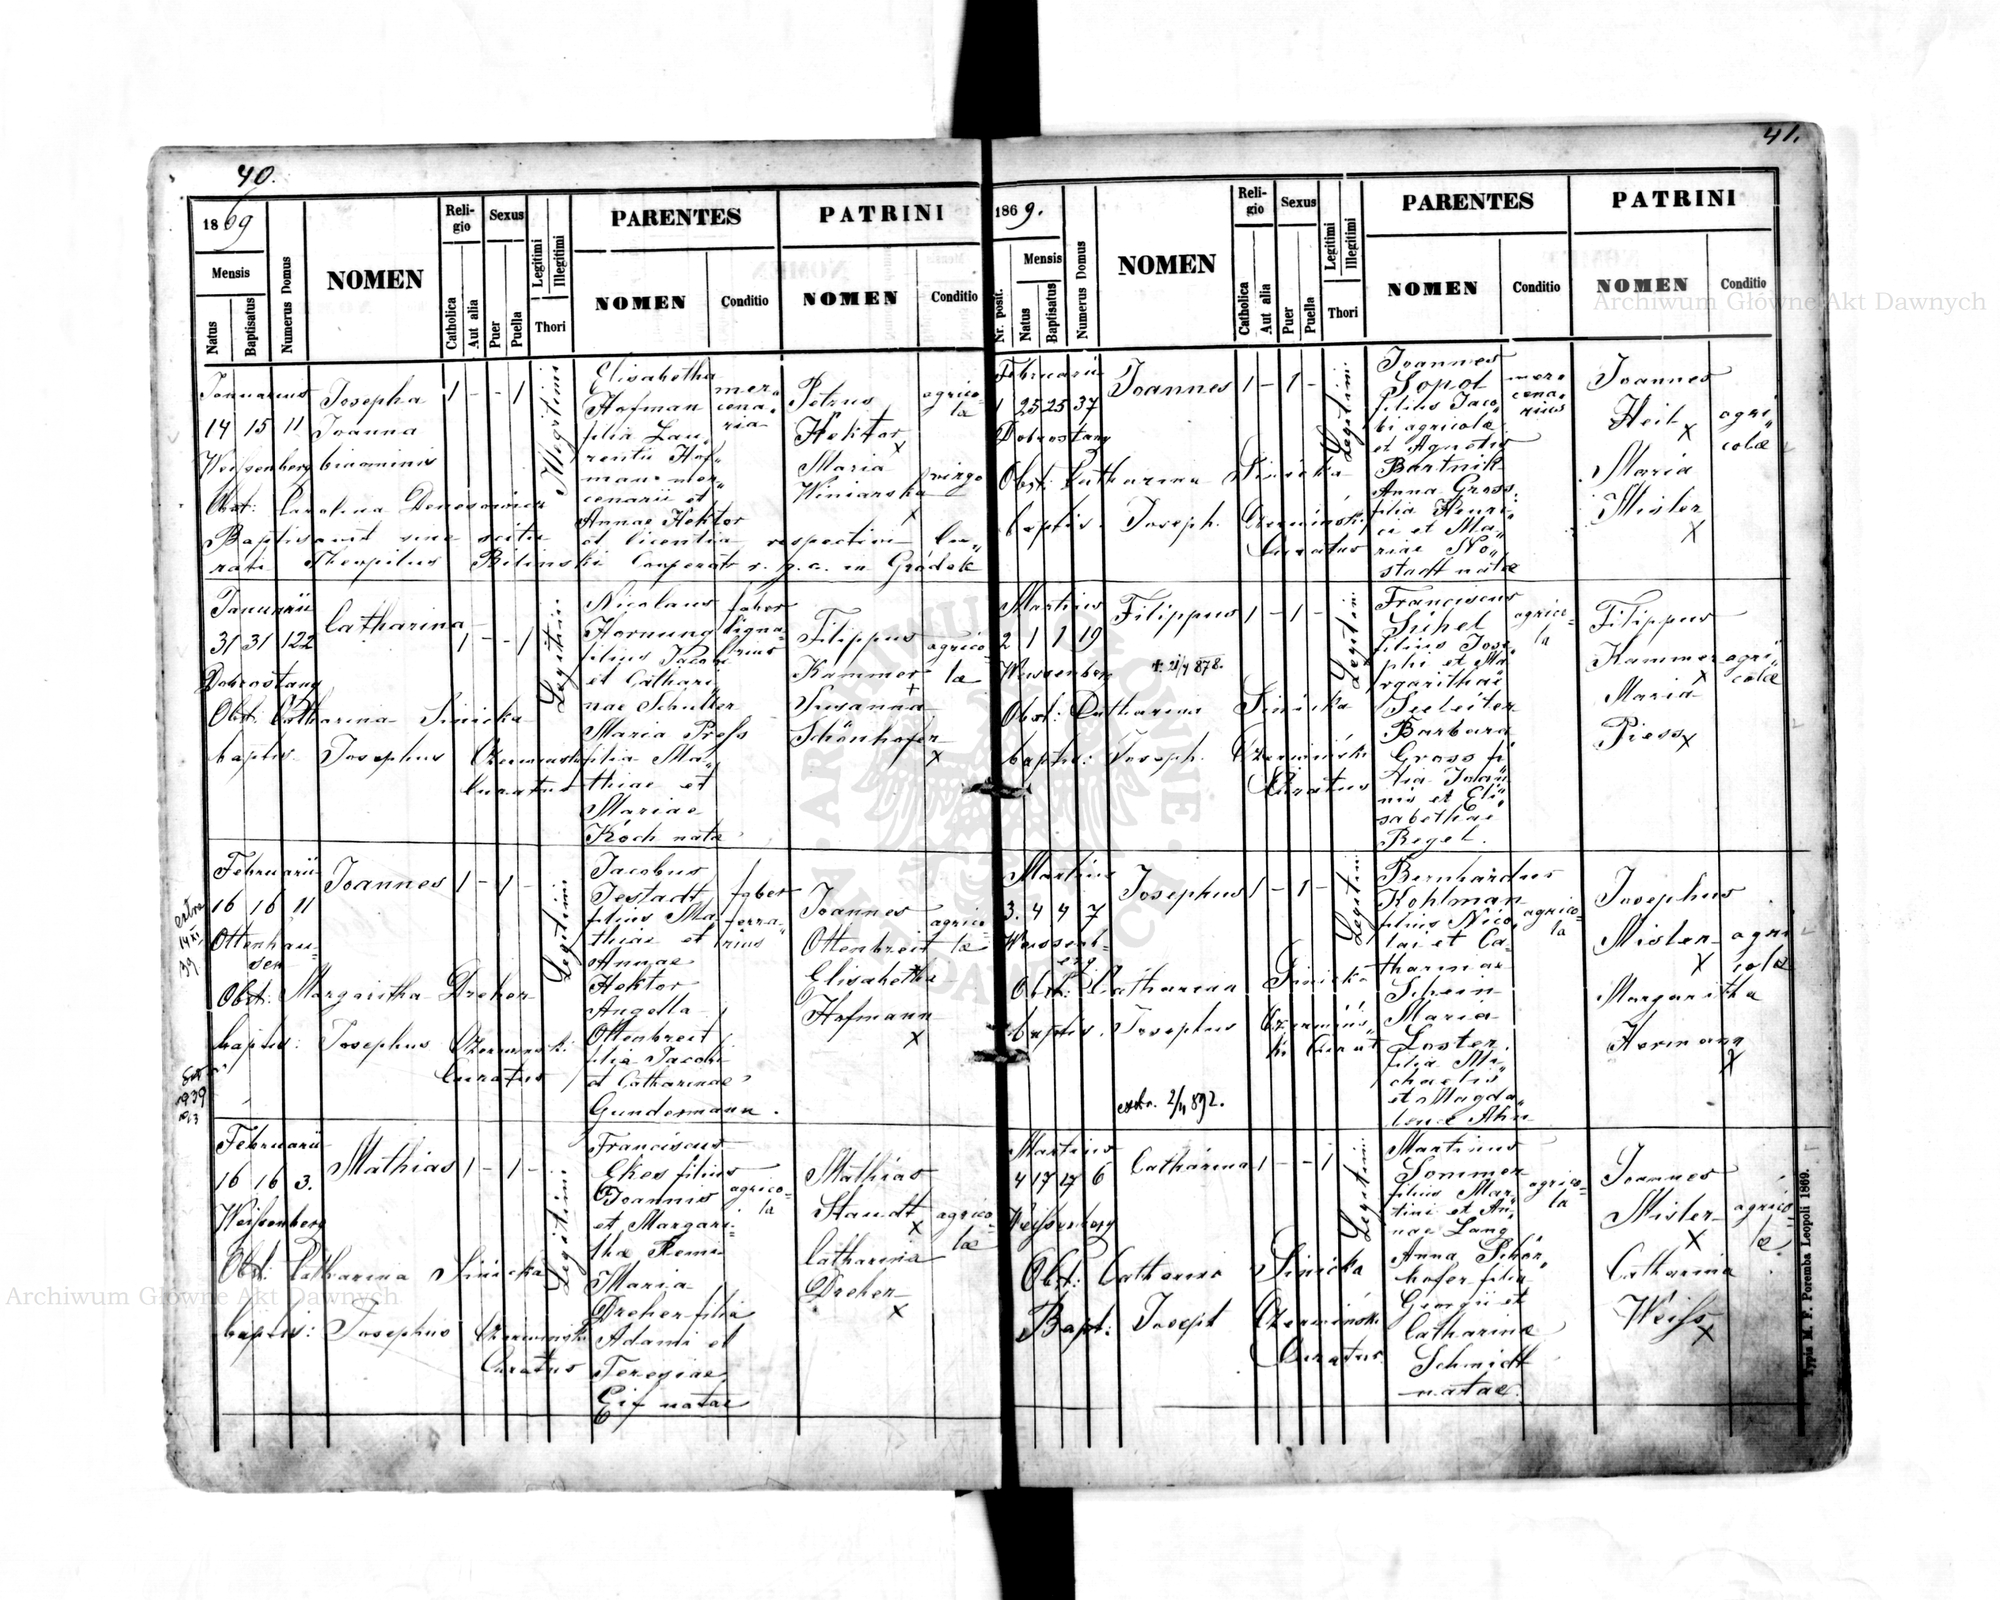 40.
1869
Mensis
Natus
Baptisatus
Numerus Domus
NOMEN
Reli-
gio
Catholica
Aut alia
Sexus
Puer
Puella
Legitimi
Illegitimi
Thori
PARENTES
NOMEN
Conditio
PATRINI
NOMEN
Conditio
Januarius
14 15 11
Weissenberg
Josepha
Joanna
binominis
1 - - 1
Illegitimi
Elisabetha
Hofman
filia Lau„
rentii Hof„
man mer„
cenarii et
Annae Hektor
mer„
cena„
ria
Petrus
Hektor
x
Maria
Winiarska
x
agrico„
la
virgo
Obst: Carolina
Baptisavit sine scitu et licentia respectivi Cu„
rati Theophilus Biliński Cooperatr r. g. c. in Gródek
Januarii
31 31 122
Dobrostany
Catharina
1 - - 1
Legitimi
Nicolaus
Hornung
filius Jacobi
et Cathari
nae Schulker
Maria Press
filia Ma„
thiae et
Mariae
Koch nata
faber
ligna„
rius
Filippus
Kammer
+
Susanna
Schönhofer
x
agrico„
lae
Obst: Catharina Sinicka
baptis. Josephus Czerwinski
Curatus
Februarii
16 16 11
Ottenhau„
sen
Joannes
1 - 1 -
Legitimi
Jacobus
Testadt
filius Ma„
thiae et
Annae
Hektor
Angella
Ottenbreit
filia Jacobi
et Catharinae
Gundermann.
faber
ferra„
rius
Joannes
Ottenbreit
Elisabetha
Hofmann
x
agrico„
lae
Obst: Margaritha Dreher
baptis: Josephus Czerwinski
Curatus
extra
14 XI
39
939
Februarii
16 16 3.
Weissenberg
Mathias
1 - 1 -
Legitimi
Franciscus
Ekes filius
Joannis
et Margari„
thae Remi
Maria
Dreher filia
Adami et
Teresiae
Eif natae
agrico„
la
Mathias
Staudt
x
Catharina
Dreher
x
agrico„
lae
Obst: Catharina Sinicka
baptis: Josephus Czerwinski
Curatus
41.
1869.
Nr. posit.
Mensis
Natus
Baptisatus
Numerus Domus
NOMEN
Reli-
gio
Catholica
Aut alia
Sexus
Puer
Puella
Legitimi
Illegitimi
Thori
PARENTES
NOMEN
Conditio
PATRINI
NOMEN
Conditio
Februarii
1 25 25 37
Dobrostany
Joannes
1 - 1 -
Legitimi
Joannes
Sopot
filius Jaco„
bi agricolae
et Agnetis
Bartnik
Anna Gross
filia Henri„
ci et Ma„
riae No„
stadt natae
merce
cena„
rius
Joannes
Heil
x
Maria
Misler
x
agri„
colae
Obst: Catharina Sinicka
baptis. Joseph. Czerwinski
Curatus
Martius
2 1 1 19
Weissenberg
Filippus
1 - 1 -
+ 21/4 878.
Legitimi
Franciscus
Suhel
filius Jose„
phi et Ma„
rgarithae
Seileiter
Barbara
Gross fi
lia Joan„
nis et Eli„
sabethae
Regel.
agrico„
la
Filippus
Kammer
x
Maria
Piess
x
agri„
colae
Obst: Catharina Sinicka
baptis: Joseph. Czerwiński
Curatus
Martius
3. 4 4 7
Weissenb„
erg
Josephus
1 - 1 -
Legitimi
Bernhardus
Kohlman
filius Nico„
lai et Ca„
tharinae
Schein
Maria
Loster
filia Mi„
chaelis
et Magda„
lenae Ahn
agrico„
la
Josephus
Misler
x
Margaritha
Hermann
x
agri
colae
Obst: Catharina Sinicka
baptis. Josephus Czerwińs„
ki Curat
extr. 2/11 892.
Martius
4 17 17 6
Weissenberg
Catharina
1 - - 1
Legitimi
Martinus
Sommer
filius Mar„
tini et An„
nae Lang
Anna Schön„
hofer filia
Georgii et
Catharinae
Schmidt
natae.
agrico„
la
Joannes
Misler
x
Catharina
Weiss
x
agrico
lae
Obst: Catharina Sinicka
Bapt: Joseph Czerwiński
Curatus
Typis M. F. Poremba Leopoli 1869.
Archiwum Główne Akt Dawnych
Archiwum Główne Akt Dawnych